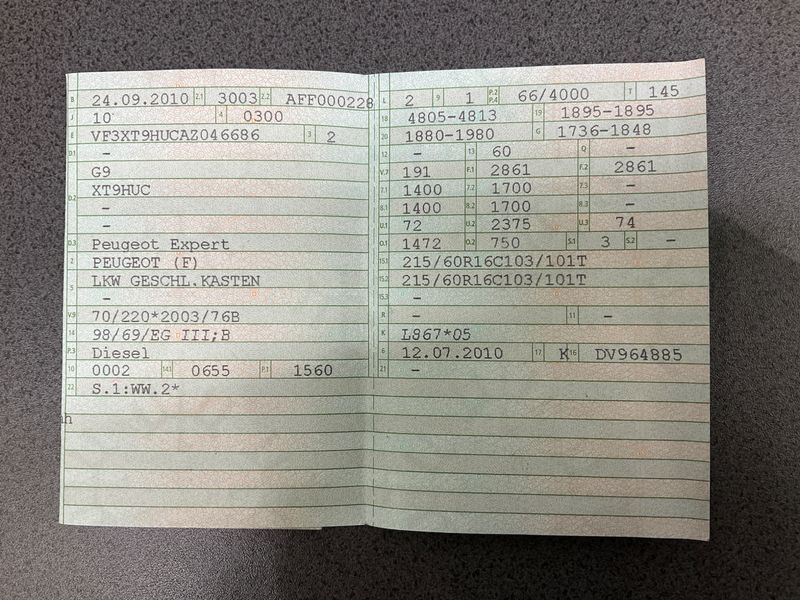 B 24.09.2010 2.1 3003 2.2 AFF000228
J 10 4 0300
E VF3XT9HUCAZ046686 3 2
D.1 -
G9
D.2 XT9HUC
-
-
D.3 Peugeot Expert
2 PEUGEOT (F)
5 LKW GESCHL.KASTEN
-
V.9 70/220*2003/76B
14 98/69/EG III;B
P.3 Diesel
10 0002 14.1 0655 P.1 1560
22 S.1:WW.2*
L 2 9 1 P.2 P.4 66/4000 T 145
18 4805-4813 19 1895-1895
20 1880-1980 G 1736-1848
12 - 13 60 Q -
V.7 191 F.1 2861 F.2 2861
7.1 1400 7.2 1700 7.3 -
8.1 1400 8.2 1700 8.3 -
U.1 72 U.2 2375 U.3 74
O.1 1472 O.2 750 S.1 3 S.2 -
15.1 215/60R16C103/101T
15.2 215/60R16C103/101T
15.3 -
R - 11 -
K L867*05
6 12.07.2010 17 K 16 DV964885
21 -